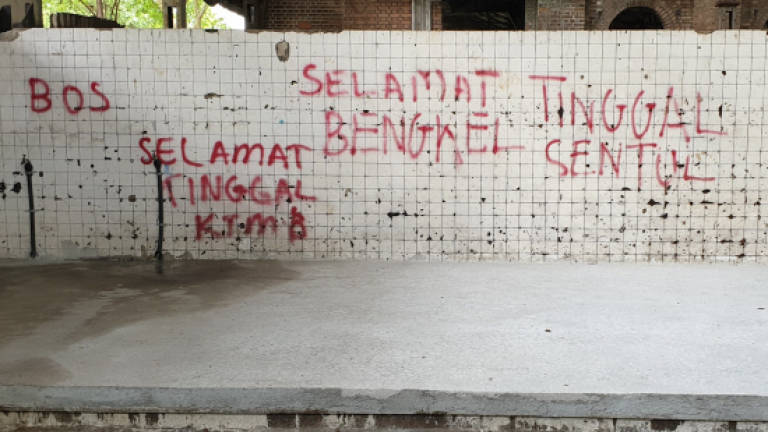 BOS
SELAMAT TINGGAL
KTMB
SELAMAT TINGGAL
BENGKEL SENTUL